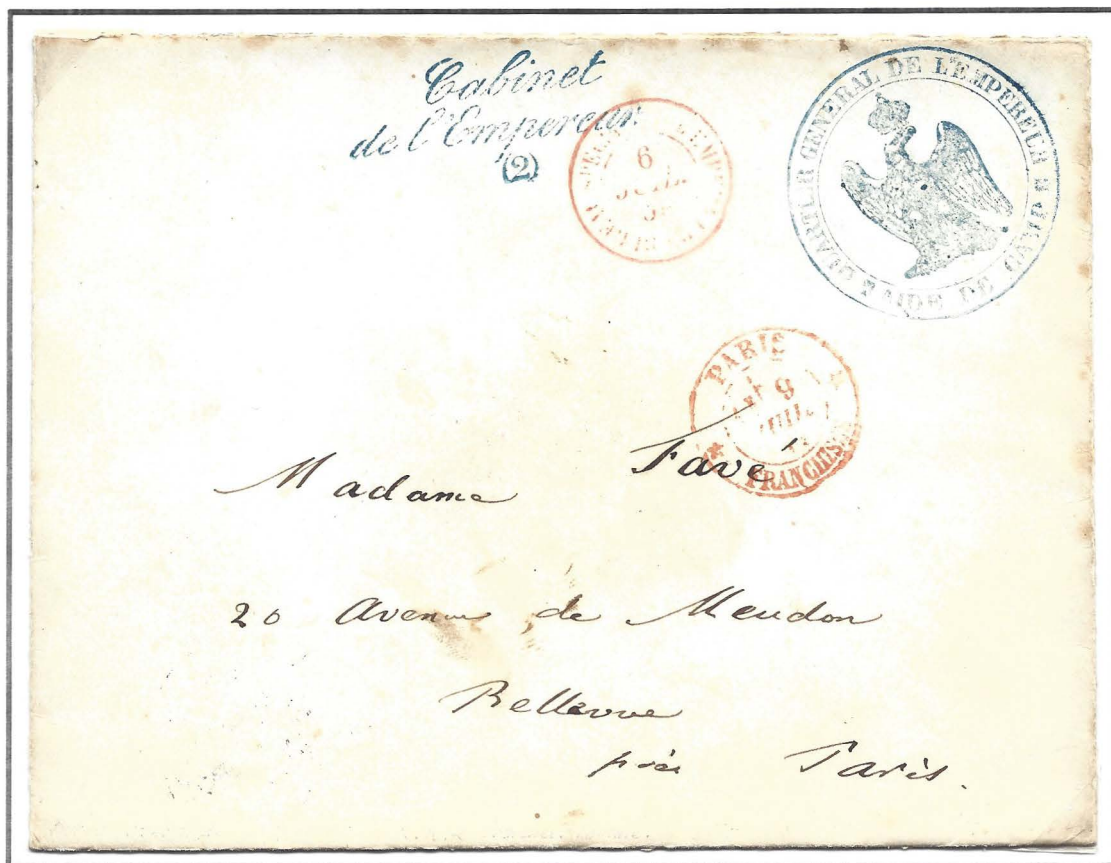 Cabinet
de l'Empereur
(2)
QUARTIER GENERAL DE L'EMPEREUR
AIDE DE CAMP
6
PARIS
9
FRANCHISE
Madame Favé
20 Avenue de Meudon
Bellevue
près Paris.